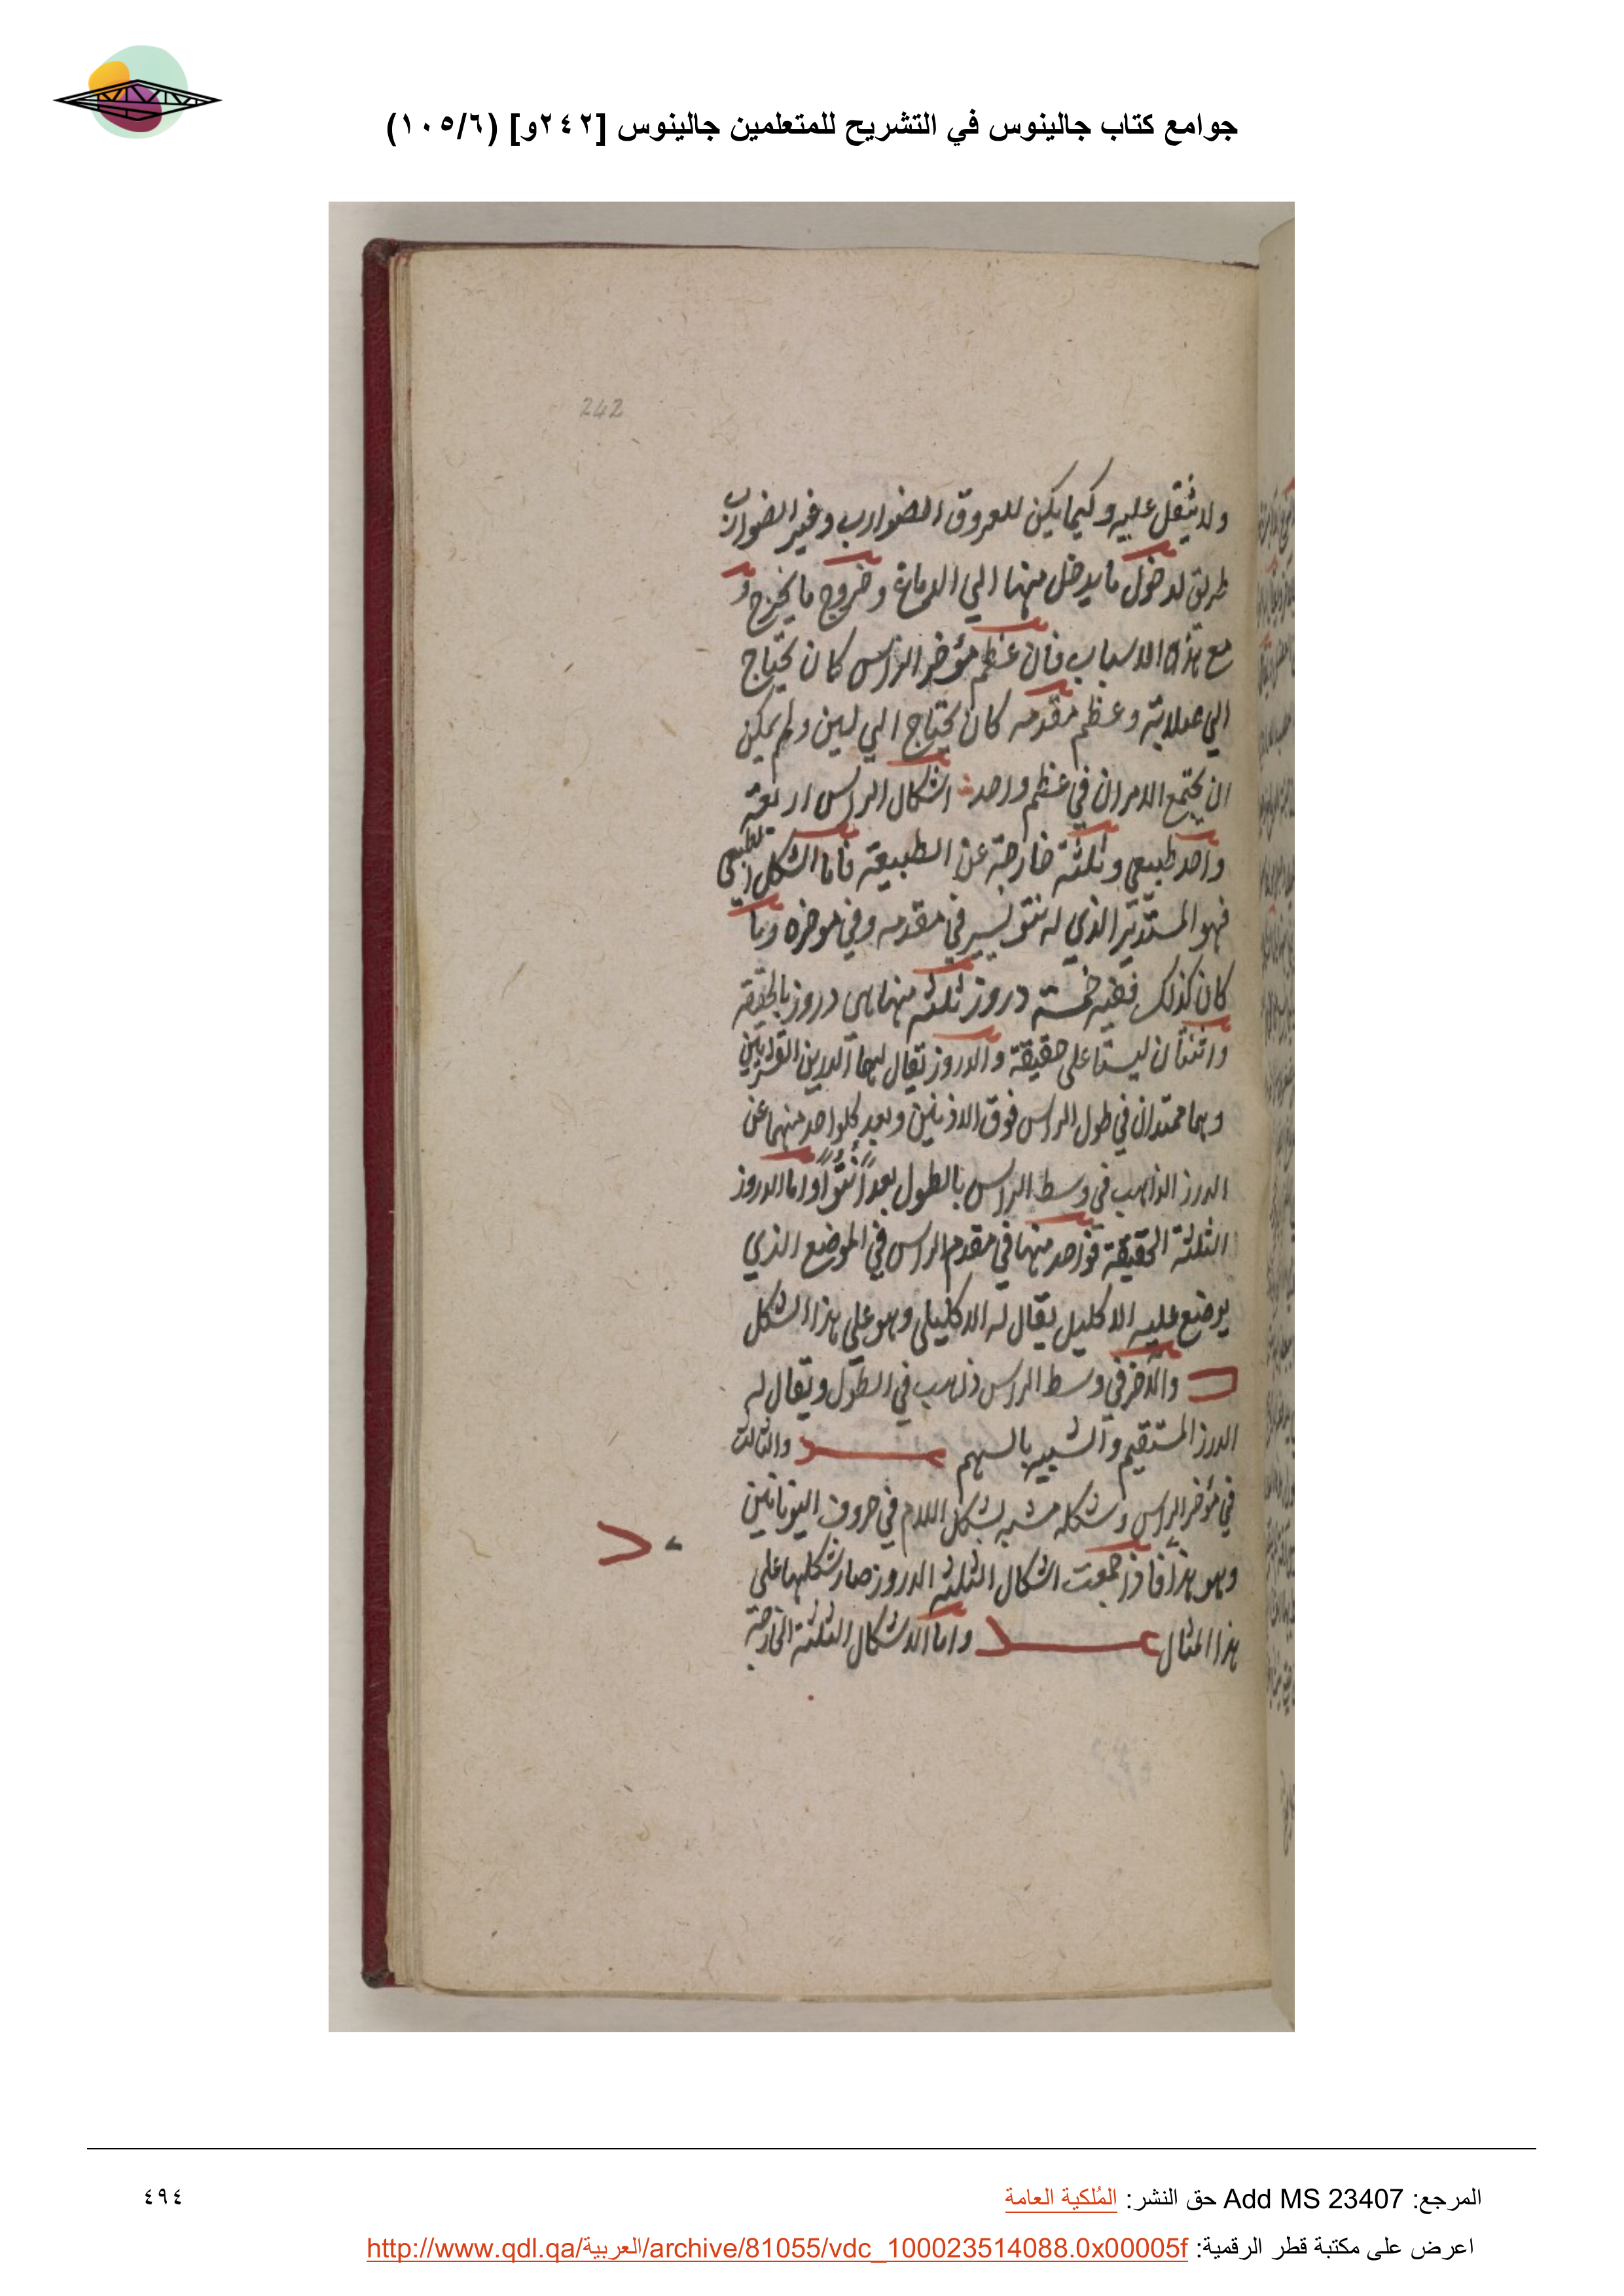 جوامع كتاب جالينوس في التشريح للمتعلمين جالينوس [٢٤٢و] (١٠٥/٦)
242
ولا يثقل عليه وكيما يكن للعروق الضوارب وغير الضوارب
طريق لدخول ما يدخل منها الي الدماغ وخروج ما يخرج و
مع هذه الاسباب فان عظم مؤخر الراس كان يحتاج
الي صلابة وعظم مقدمه كان يحتاج الي لين ولم يمكن
ان يجتمع الامران في عظم واحد اشكال الراس اربعة
واحد طبيعي وثلثة خارجة عن الطبيعة فاما الشكل الطبيعي
فهو المستدير الذي له نتو يسير في مقدمه وفي موخره وما
كان كذلك ففيه خمسة دروز ثلثة منها هي دروز بالحقيقة
واثنتان ليستا على حقيقة والدروز يقال لها
وهما ممتدان في طول الراس فوق الاذنين وبعد كلواحد منهما عن
الدرز الذاهب في وسط الراس بالطول بعدا واما الدروز
الثلثة الحقيقة فواحد منها في مقدم الراس في الموضع الذي
يوضع عليه الاكليل يقال له الاكليلي وهو علي هذا الشكل
والآخر في وسط الراس ذاهب في الطول ويقال له
الدرز المستقيم والشبيه بالسهم والثالث
في مؤخر الراس وشكله شبيه بشكل اللام في حروف اليونانيين
وهو هذا فاذا جمعت اشكال الثلثة الدروز صار شكلها على
هذا المثال واما الاشكال الثلثة الخارجة
المرجع: Add MS 23407 حق النشر: المُلكية العامة
٤٩٤
اعرض على مكتبة قطر الرقمية: http://www.qdl.qa/العربية/archive/81055/vdc_100023514088.0x00005f